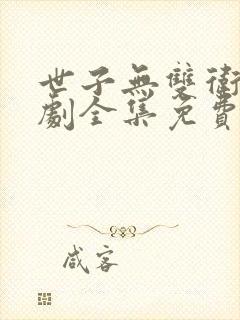 世子無雙衛
劇全集免費
咸客